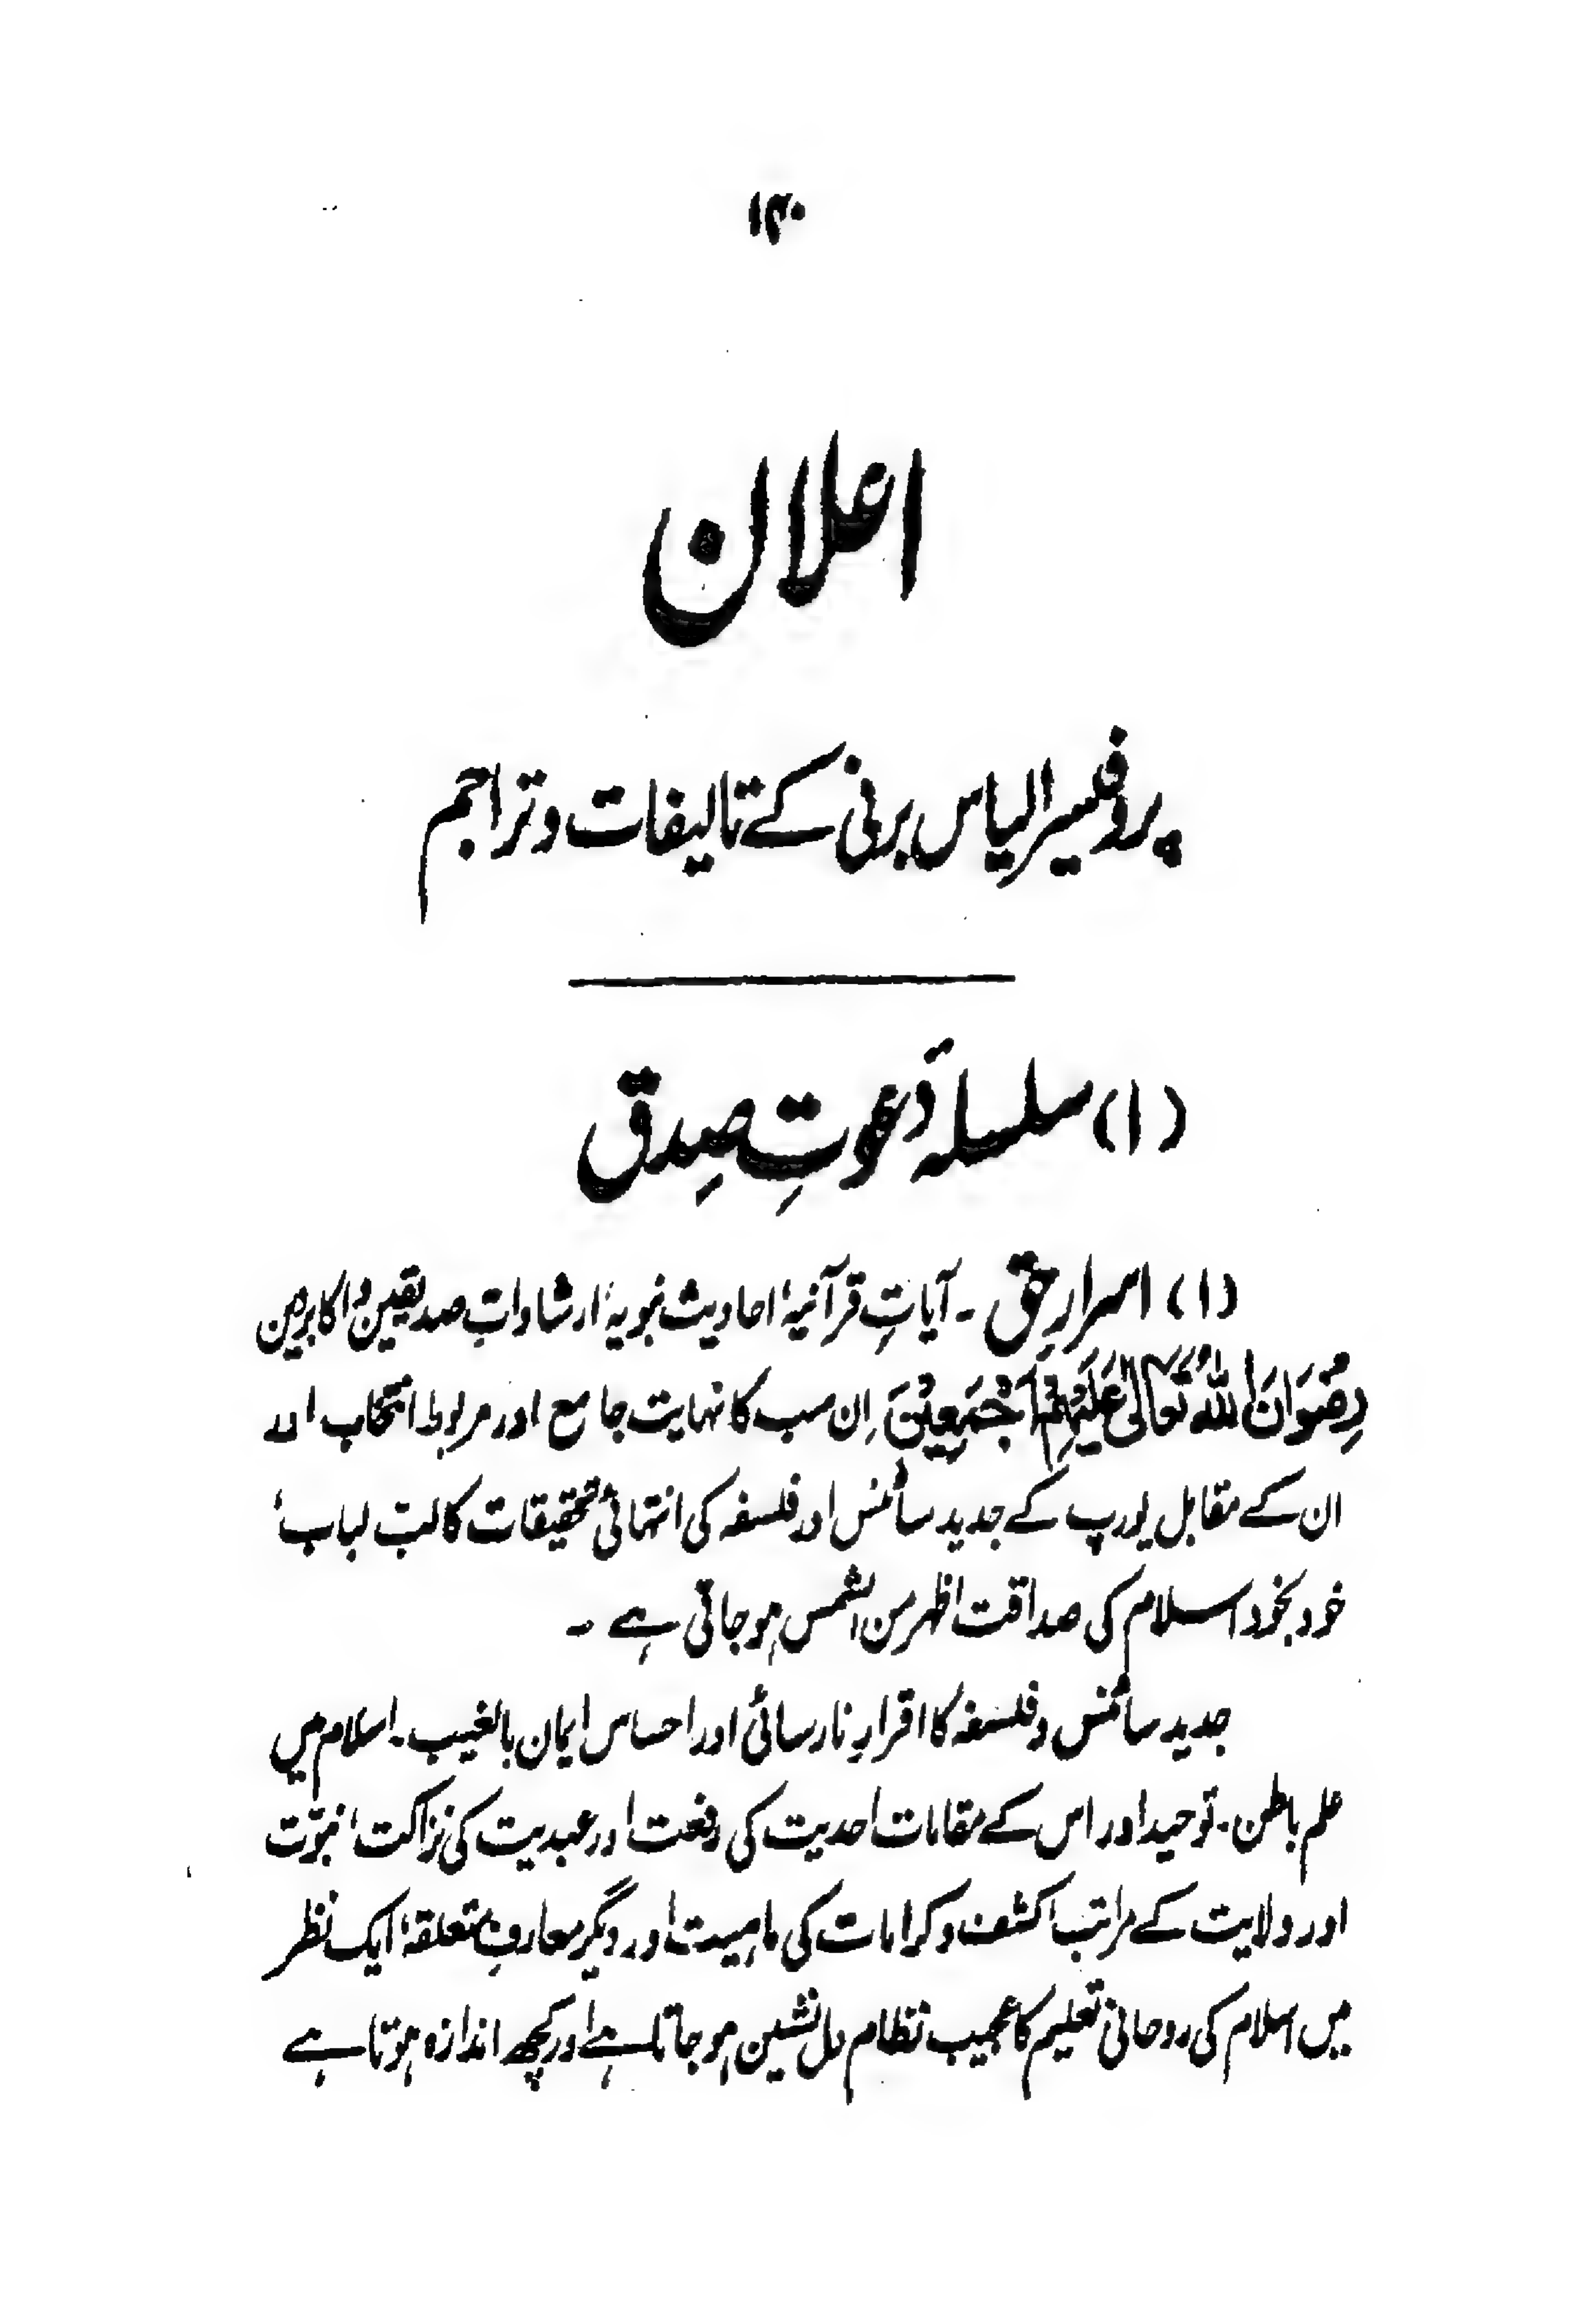 ۱۳۰
اعلان
پروفیسر الیاس برنی کے تالیفات و تراجم
(۱) سلسلۂ دَعوتِ صِدق
(۱) اسرارِ حق ۔ آیاتِ قرآنیہ، احادیث نبویہ، ارشاداتِ صدیقین و اکابر دین
رِضْوَانَ اللّٰہُ تَعَالٰی عَلَیْہِمْ اَجْمَعِیْنَ اِن سب کا نہایت جامع اور مربوط انتخاب اور
ان کے مقابل یورپ کے جدید سائنس اور فلسفہ کی انتہائی تحقیقات کا لبّ لباب،
خود بخود اسلام کی صداقت اظہر من الشمس ہو جاتی ہے ۔
جدید سائنس و فلسفہ کا اقرارِ نارسائی اور احساس ایمان بالغیب ۔ اسلام میں
علم باطن ۔ توحید اور اس کے مقامات احدیت کی رفعت اور عبدیت کی نزاکت، نبوّت
اور ولایت کے مراتب، کشف و کرامات کی ماہیت اور دیگر معارفِ متعلقہ، ایک نظر
میں اسلام کی روحانی تعلیم کا عجیب نظام دل نشین ہو جاتا ہے اور کچھ اندازہ ہوتا ہے